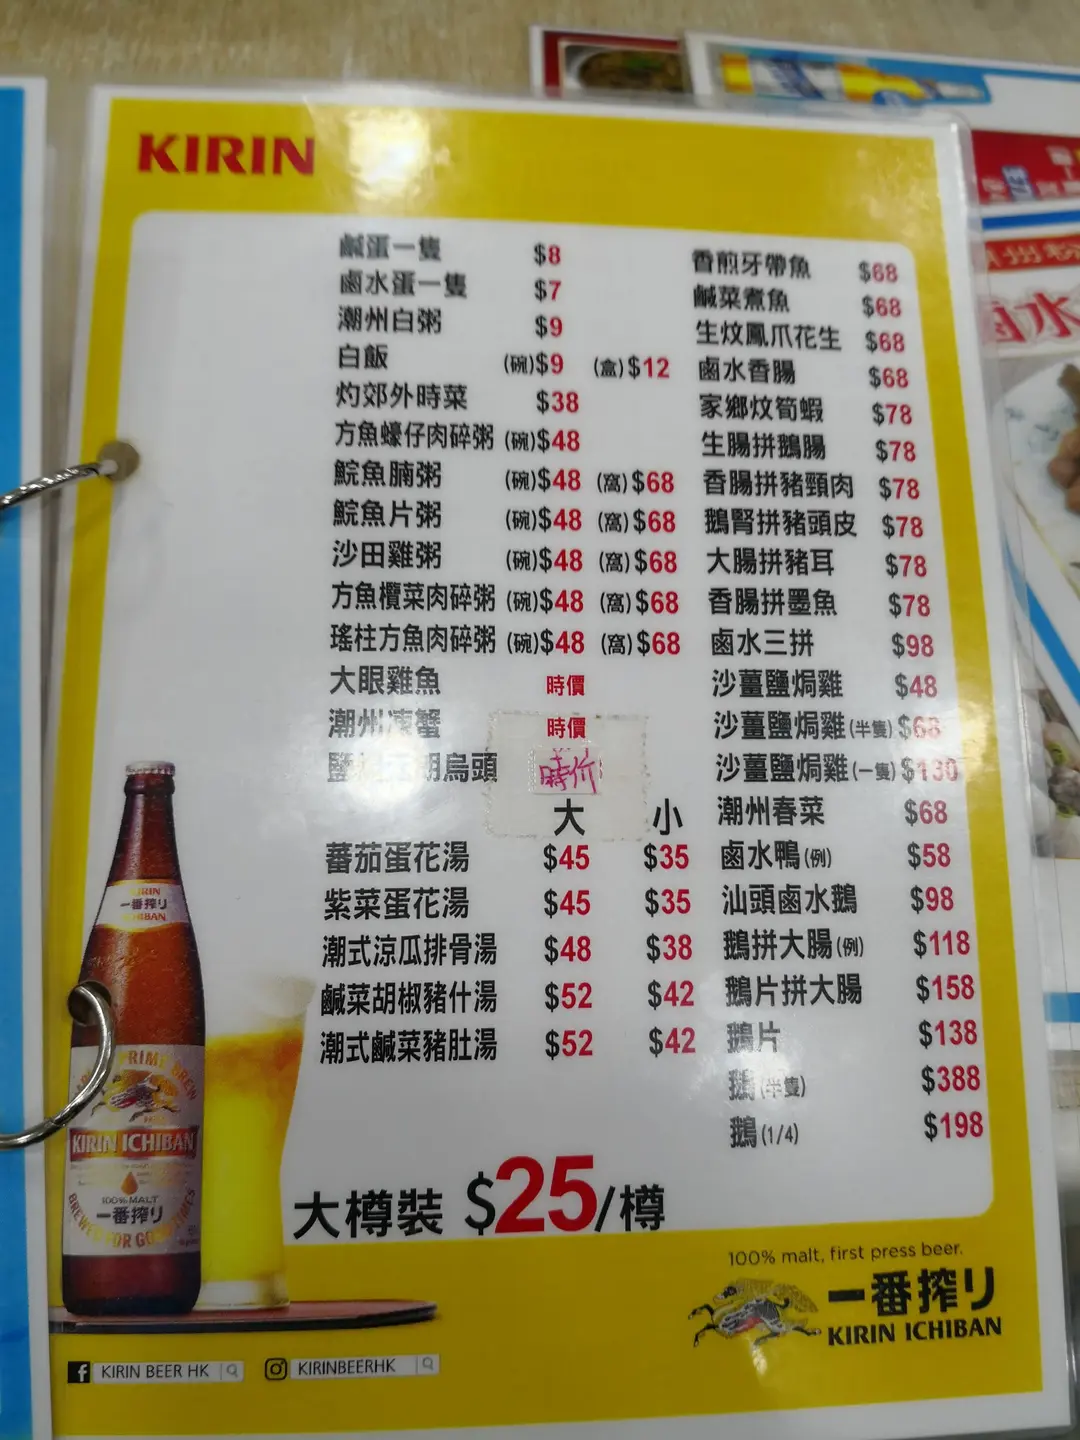 KIRIN
鹹蛋一隻 $8
鹵水蛋一隻 $7
潮州白粥 $9
白飯 (碗)$9 (盒)$12
灼郊外時菜 $38
方魚蠔仔肉碎粥 (碗)$48
鯇魚腩粥 (碗)$48 (窩)$68
鯇魚片粥 (碗)$48 (窩)$68
沙田雞粥 (碗)$48 (窩)$68
方魚欖菜肉碎粥 (碗)$48 (窩)$68
瑤柱方魚肉碎粥 (碗)$48 (窩)$68
大眼雞魚 時價
潮州凍蟹 時價
烏頭 時价
大 小
蕃茄蛋花湯 $45 $35
紫菜蛋花湯 $45 $35
潮式涼瓜排骨湯 $48 $38
鹹菜胡椒豬什湯 $52 $42
潮式鹹菜豬肚湯 $52 $42
香煎牙帶魚 $68
鹹菜煮魚 $68
生炆鳳爪花生 $68
鹵水香腸 $68
家鄉炆筍蝦 $78
生腸拼鵝腸 $78
香腸拼豬頸肉 $78
鵝腎拼豬頭皮 $78
大腸拼豬耳 $78
香腸拼墨魚 $78
鹵水三拼 $98
沙薑鹽焗雞 $48
沙薑鹽焗雞(半隻) $68
沙薑鹽焗雞(一隻) $130
潮州春菜 $68
鹵水鴨(例) $58
汕頭鹵水鵝 $98
鵝拼大腸(例) $118
鵝片拼大腸 $158
鵝片 $138
鵝(半隻) $388
鵝(1/4) $198
大樽裝 $25/樽
KIRIN
一番搾り
ICHIBAN
PRIME BREW
KIRIN ICHIBAN
100% MALT
一番搾り
100% malt, first press beer.
一番搾り
KIRIN ICHIBAN
KIRIN BEER HK
KIRINBEERHK